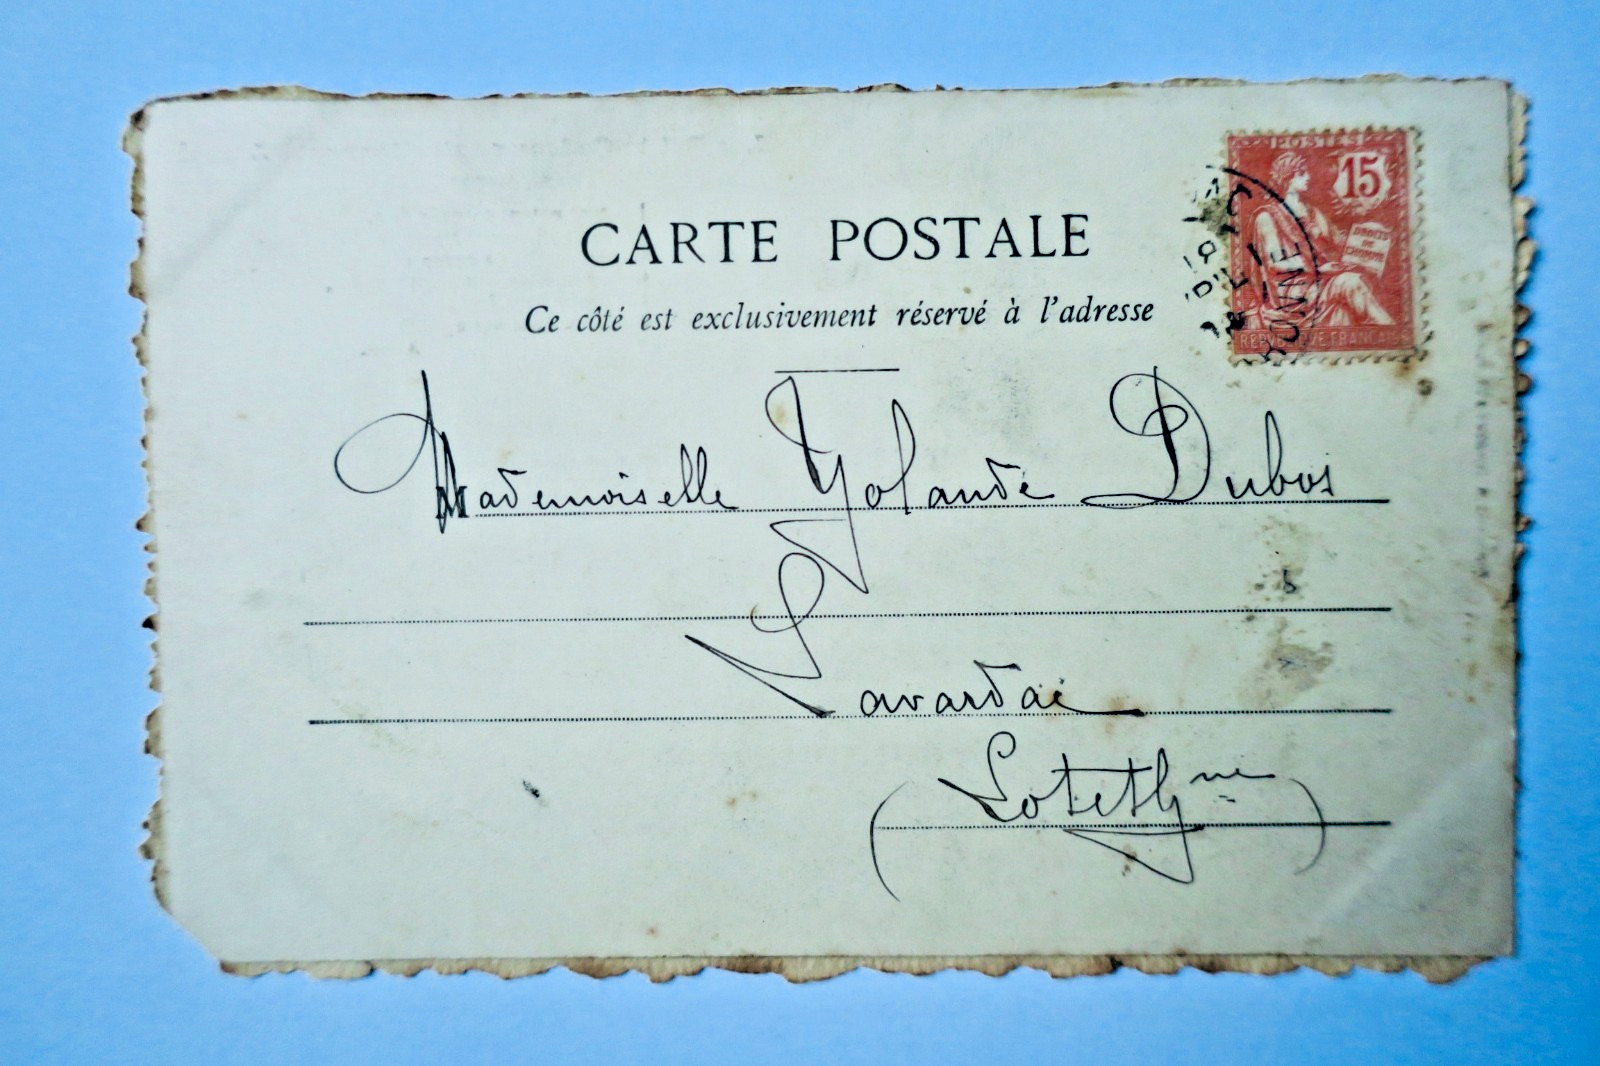 POSTES
15
DROITS
DE
RÉPUBLIQUE FRANÇAISE
CARTE POSTALE
Ce côté est exclusivement réservé à l'adresse
Mademoiselle Yolande Dubos
Lavardac
(Lot et Gne)